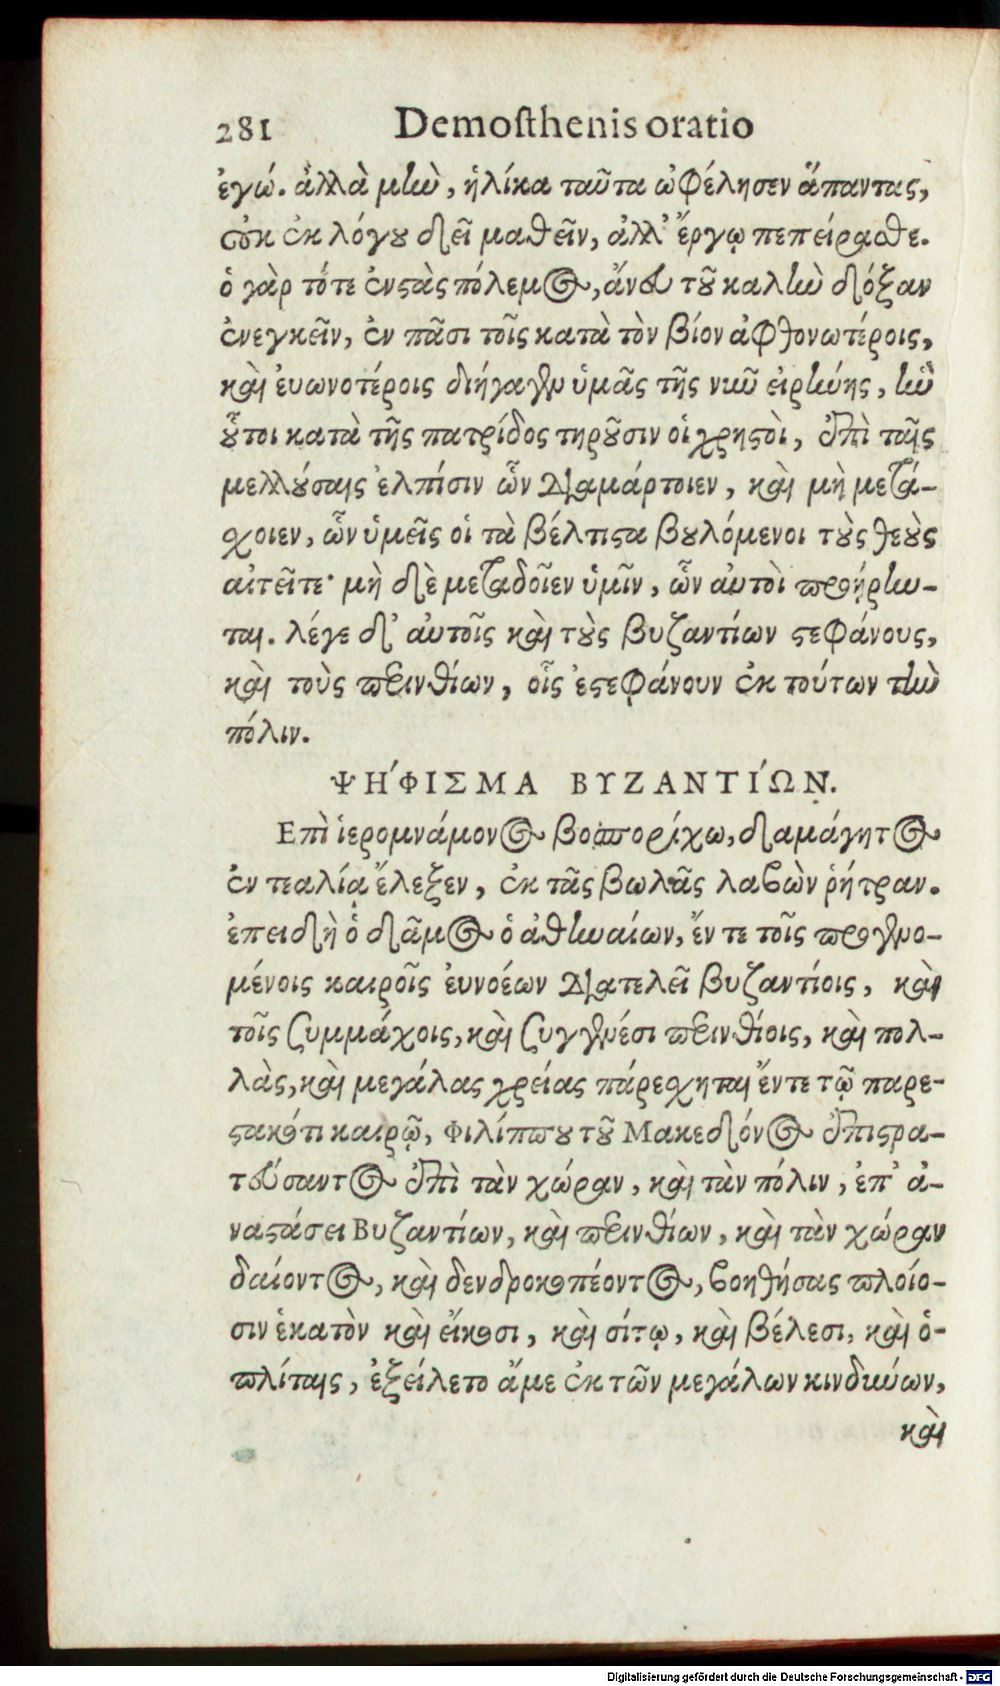 281 Demosthenis oratio
ἐγώ. ἀλλὰ μὴν, ἡλίκα ταῦτα ὠφέλησεν ἅπαντας,
οὐκ ἐκ λόγου δεῖ μαθεῖν, ἀλλ' ἔργῳ πεπείρασθε.
ὁ γὰρ τότε ἐνστὰς πόλεμος, ἄνευ τοῦ καλὴν δόξαν
ἐνεγκεῖν, ἐν πᾶσι τοῖς κατὰ τὸν βίον ἀφθονωτέροις,
καὶ ἐυωνοτέροις διήγαγεν ὑμᾶς τῆς νῦν εἰρήνης, ἣν
οὗτοι κατὰ τῆς πατρίδος τηροῦσιν οἱ χρηστοὶ, ἐπὶ ταῖς
μελλούσαις ἐλπίσιν ὧν διαμάρτοιεν, καὶ μὴ μετά-
χοιεν, ὧν ὑμεῖς οἱ τὰ βέλτιστα βουλόμενοι τοὺς θεοὺς
αἰτεῖτε· μὴ δὲ μεταδοῖεν ὑμῖν, ὧν αὐτοὶ προῄρην-
ται. λέγε δ' αὐτοῖς καὶ τοὺς βυζαντίων στεφάνους,
καὶ τοὺς περινθίων, οἷς ἐστεφάνουν ἐκ τούτων τὴν
πόλιν.
ΨΗΦΙΣΜΑ ΒΥΖΑΝΤΙΩΝ.
Επὶ ἱερομνάμονος βοσπορίχω, δαμάγητος
ἐν τεαλίᾳ ἔλεξεν, ἐκ τᾶς βωλᾶς λαβὼν ῥήτραν.
ἐπειδὴ ὁ δᾶμος ὁ ἀθηναίων, ἔν τε τοῖς προγενο-
μένοις καιροῖς ἐυνοέων διατελεῖ βυζαντίοις, καὶ
τοῖς συμμάχοις, καὶ συγγενέσι περινθίοις, καὶ πολ-
λὰς, καὶ μεγάλας χρείας πάρεσχηται ἔν τε τῷ παρε-
στακότι καιρῷ, Φιλίππου τοῦ Μακεδόνος ἐπιστρα-
τεύσαντος ἐπὶ τὰν χώραν, καὶ τὰν πόλιν, ἐπ' ἀ-
ναστάσει Βυζαντίων, καὶ περινθίων, καὶ τὰν χώραν
δαίοντος, καὶ δενδροκοπέοντος, βοηθήσας πλοίο-
σιν ἑκατὸν καὶ εἴκοσι, καὶ σίτῳ, καὶ βέλεσι, καὶ ὁ-
πλίταις, ἐξείλετο ἄμε ἐκ τῶν μεγάλων κινδύνων,
καὶ
Digitalisierung gefördert durch die Deutsche Forschungsgemeinschaft - DFG